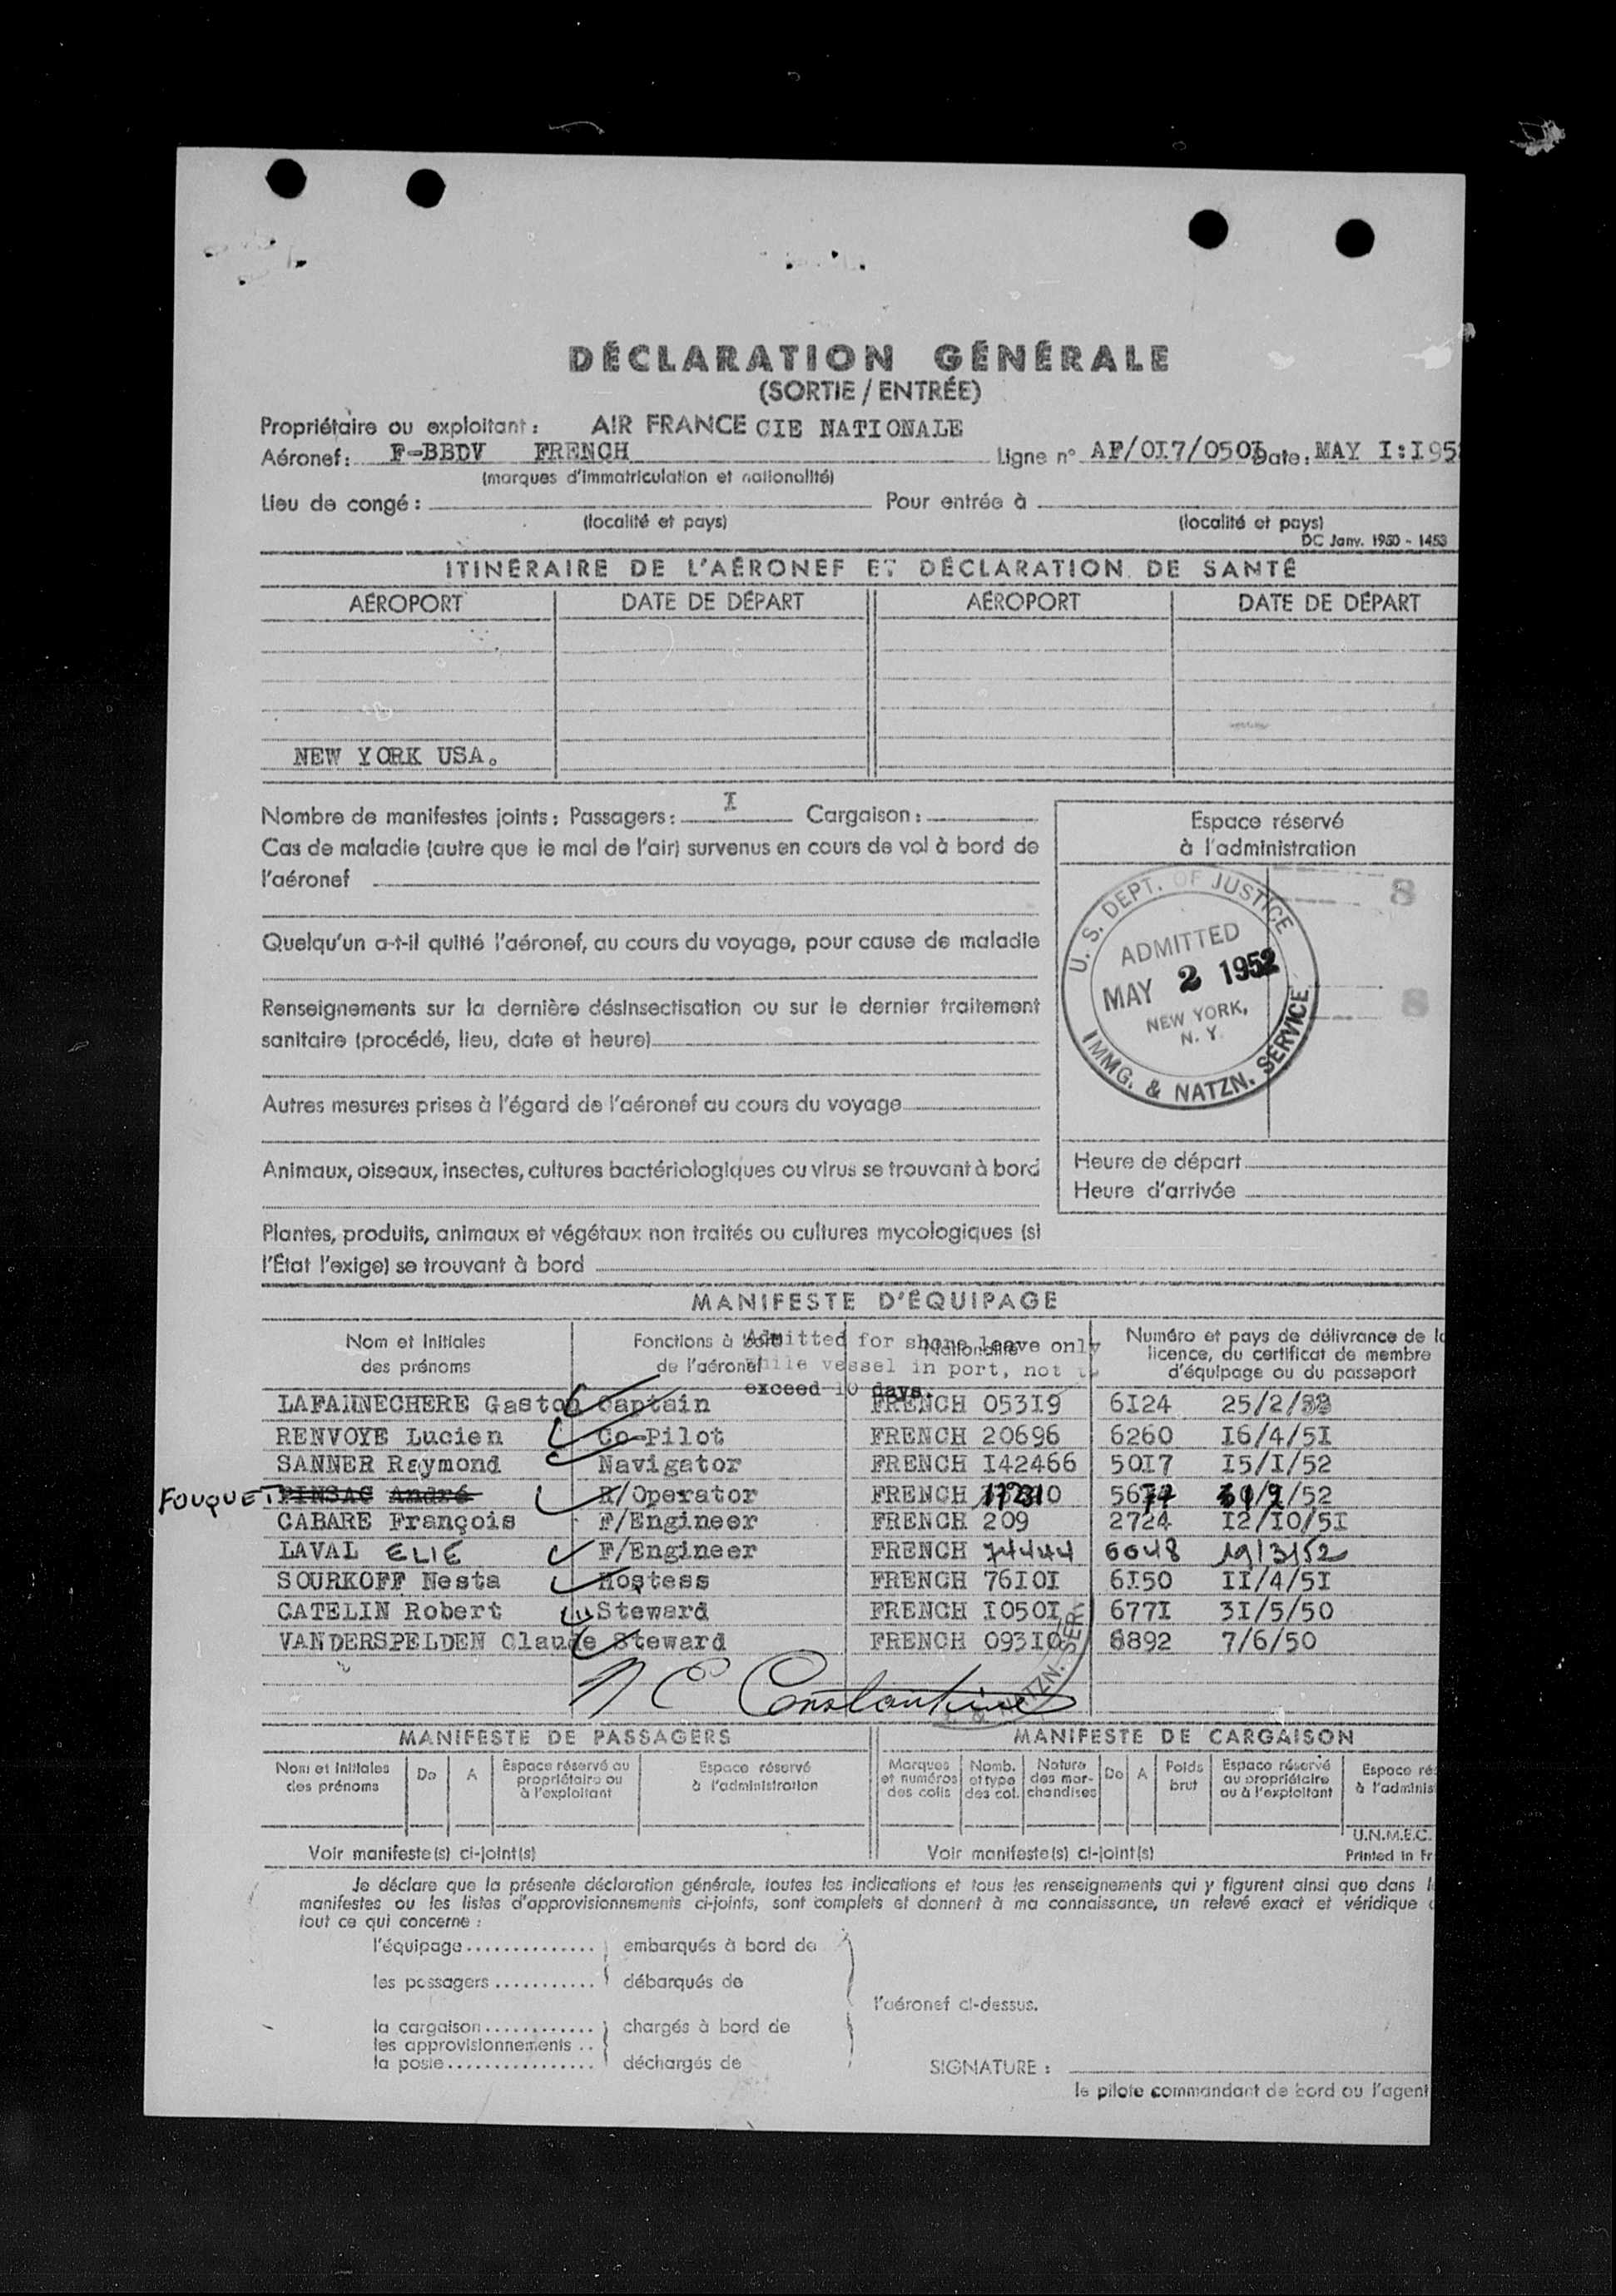 DÉCLARATION GÉNÉRALE
(SORTIE / ENTRÉE)
Propriétaire ou exploitant : AIR FRANCE CIE NATIONALE
Aéronef : F-BBDV FRENCH Ligne n° AF/OI7/050 Date : MAY I:I95
(marques d'immatriculation et nationalité)
Lieu de congé : Pour entrée à
(localité et pays) (localité et pays)
DC Janv. 1950 - 1453
ITINÉRAIRE DE L'AÉRONEF ET DÉCLARATION DE SANTÉ
AÉROPORT DATE DE DÉPART AÉROPORT DATE DE DÉPART
NEW YORK USA.
Nombre de manifestes joints : Passagers : I Cargaison :
Cas de maladie (autre que le mal de l'air) survenus en cours de vol à bord de
l'aéronef
Quelqu'un a-t-il quitté l'aéronef, au cours du voyage, pour cause de maladie
Renseignements sur la dernière désinsectisation ou sur le dernier traitement
sanitaire (procédé, lieu, date et heure)
Autres mesures prises à l'égard de l'aéronef au cours du voyage
Animaux, oiseaux, insectes, cultures bactériologiques ou virus se trouvant à bord
Plantes, produits, animaux et végétaux non traités ou cultures mycologiques (si
l'État l'exige) se trouvant à bord
Espace réservé
à l'administration
8
8
U. S. DEPT. OF JUSTICE
ADMITTED
MAY 2 1952
NEW YORK,
N. Y.
IMMG. & NATZN. SERVICE
Heure de départ
Heure d'arrivée
MANIFESTE D'ÉQUIPAGE
Nom et Initiales des prénoms
Fonctions à bord de l'aéronef
Nationalité
Numéro et pays de délivrance de l
licence, du certificat de membre
d'équipage ou du passeport
Admitted for shore leave only
while vessel in port, not to
exceed 10 days.
LAFANNECHERE Gaston Captain FRENCH 053I9 6I24 25/2/
RENVOYE Lucien Co-Pilot FRENCH 20696 6260 I6/4/5I
SANNER Raymond Navigator FRENCH I42466 50I7 I5/I/52
FOUQUET PINSAC André R/Operator FRENCH /52
CABARE François F/Engineer FRENCH 209 2724 I2/IO/5I
LAVAL ELIE F/Engineer FRENCH 74444 6048 19/3/52
SOURKOFF Nesta Hostess FRENCH 76I0I 6I50 II/4/5I
CATELIN Robert Steward FRENCH I050I 677I 3I/5/50
VANDERSPELDEN Claude Steward FRENCH 093I0 6892 7/6/50
N C Constantine
NATZN. SER
MANIFESTE DE PASSAGERS MANIFESTE DE CARGAISON
Nom et Initiales des prénoms
De
A
Espace réservé au propriétaire ou à l'exploitant
Espace réservé à l'administration
Marques et numéros des colis
Nomb. et type des col.
Nature des marchandises
De
A
Poids brut
Espace réservé au propriétaire ou à l'exploitant
Espace ré
à l'adminis
U.N.M.E.C.
Voir manifeste(s) ci-joint(s) Voir manifeste(s) ci-joint(s) Printed in Fr
Je déclare que la présente déclaration générale, toutes les indications et tous les renseignements qui y figurent ainsi que dans l
manifestes ou les listes d'approvisionnements ci-joints, sont complets et donnent à ma connaissance, un relevé exact et véridique
tout ce qui concerne :
l'équipage .............. embarqués à bord de
les passagers ........... débarqués de
l'aéronef ci-dessus.
la cargaison ............ chargés à bord de
les approvisionnements ..
la poste ................ déchargés de
SIGNATURE :
le pilote commandant de bord ou l'agent